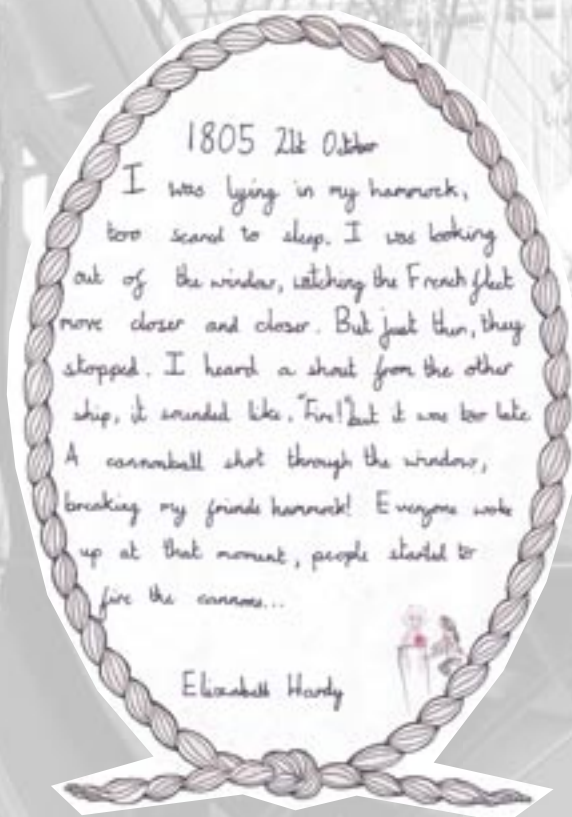 1805 21st October
I was lying in my hammock,
too scared to sleep. I was looking
out of the window, watching the French fleet
move closer and closer. But just then, they
stopped. I heard a shout from the other
ship, it sounded like, "Fire!" but it was too late
A cannonball shot through the window,
breaking my friends hammock! Everyone woke
up at that moment, people started to
fire the cannons...
Elizabeth Hardy